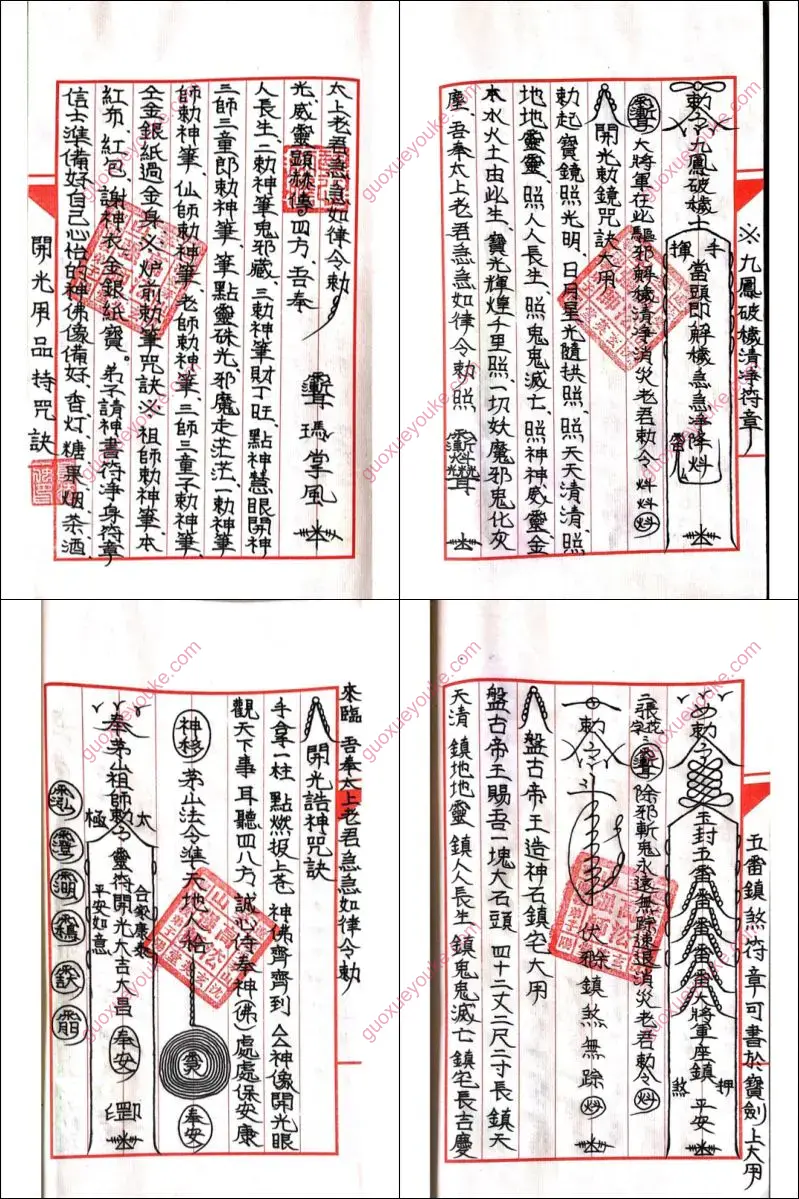 開光用品持咒訣
信士準備好自己心怡的神佛像備好、香灯、糖果烟茶酒、
紅布、紅包、謝神衣金銀紙寶。弟子請神書符淨身符章
仝金銀紙過金身※炉前勅筆咒訣※祖師勅神筆、本
師勅神筆、仙師勅神筆、老師勅神筆、三師三童子勅神筆、
三師三童郎勅神筆、筆點靈硃光、邪魔走茫茫一勅神筆
人長生、二勅神筆鬼邪藏、三勅神筆財丁旺、點神慧眼開神
光、威靈顯赫傳四方、吾奉
太上老君急急如律令勅
瑪掌風
※九鳳破穢清淨符章
勅令九鳳破穢士 當頭即解穢急急淨降
手 揮
大將軍在此驅邪解穢清淨消災老君勅令
開光勅鏡咒訣大用
勅起寶鏡照光明、日月星光隨拱照、照天天清清、照
地地靈靈、照人人長生、照鬼鬼滅亡、照神神威靈金
本水火土由此生、寶光輝煌千里照、一切妖魔邪鬼化灰
塵、吾奉太上老君急急如律令勅照
來臨 吾奉太上老君急急如律令勅
開光誥神咒訣
手拿一柱 點燃拔上苍 神佛齊齊到 仝神像開光眼
觀天下事 耳聽四八方 誠心侍奉神(佛)處處保安康
茅山法令準天地人
奉安
奉茅山祖師勅令靈符開光大吉大昌 奉安
太 極
合家康泰
平安如意
五番鎮煞符章可書於寶劍上大用
勅令
玉封五番番番番番番大將軍座鎮 平安
押 煞
除邪斬鬼永遠無踪速退消災老君勅令
勅令
鎮煞無踪
盤古帝王造神石鎮宅大用
盤古帝王賜吾一塊大石頭 四十二丈二尺二寸長 鎮天
天清 鎮地地靈 鎮人人長生 鎮鬼鬼滅亡 鎮宅長吉慶
guoxueyouke.com
guoxueyouke.com
guoxueyouke.com
guoxueyouke.com